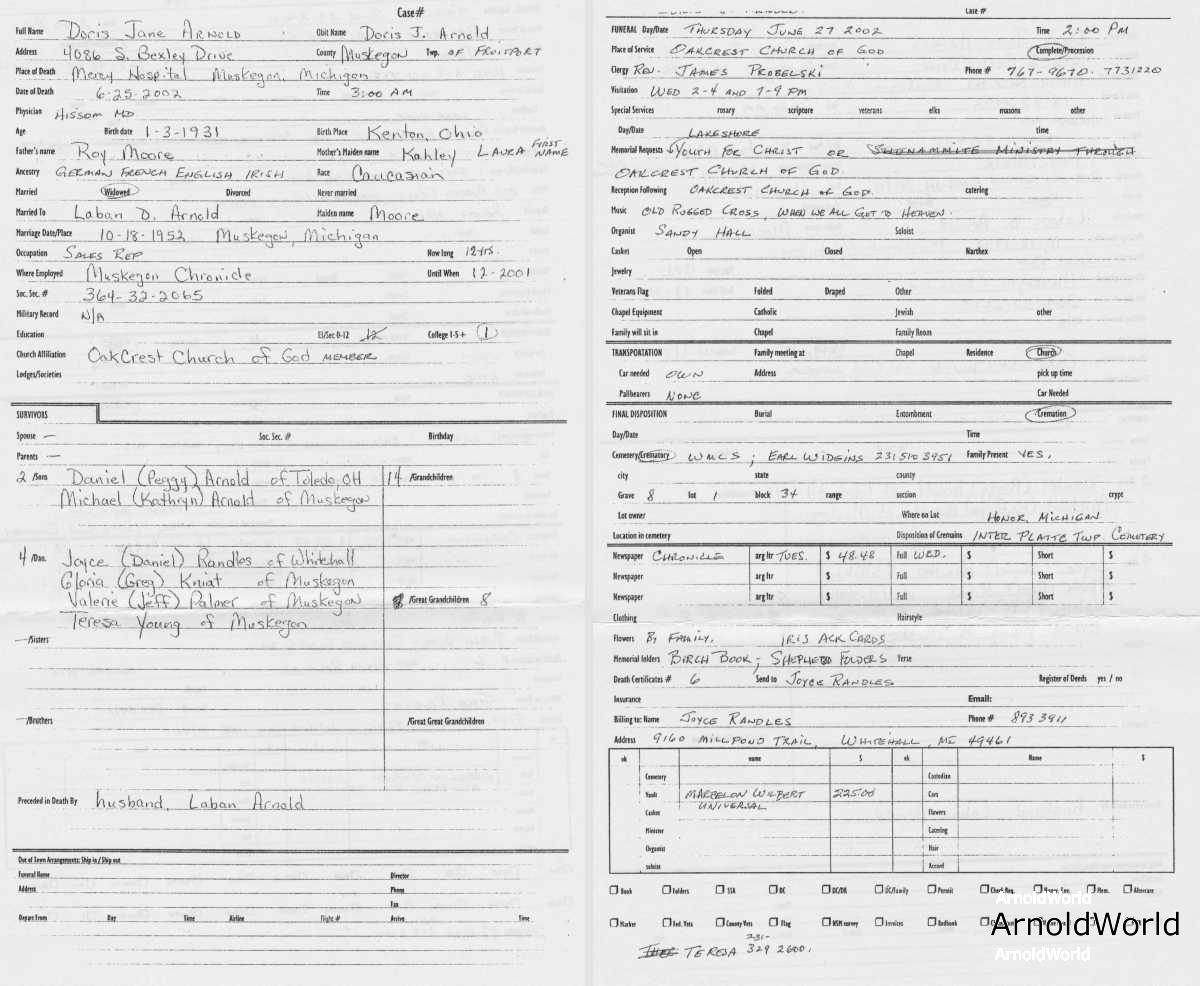 Case#
Full Name Doris Jane ARNOLD Obit Name Doris J. Arnold
Address 4086 S. Bexley Drive County Muskegon Twp. OF FRUITPORT
Place of Death Mercy Hospital Muskegon, Michigan
Date of Death 6-25-2002 Time 3:00 AM
Physician HISSOM MD
Age Birth date 1-3-1931 Birth Place Kenton, Ohio
Father's name Roy Moore Mother's Maiden name Kahley LAURA FIRST NAME
Ancestry GERMAN FRENCH ENGLISH IRISH Race Caucasian
Married Widowed Divorced Never married
Married To Laban D. Arnold Maiden name Moore
Marriage Date/Place 10-18-1952 Muskegon, Michigan
Occupation SALES REP How long 12 yrs.
Where Employed Muskegon Chronicle Until When 12-2001
Soc. Sec. # 364-32-2065
Military Record N/A
Education El/Sec 0-12 12 College 1-5+ 1
Church Affiliation OakCrest Church of God MEMBER
Lodges/Societies
SURVIVORS
Spouse — Soc. Sec. # Birthday
Parents —
2 /Sons Daniel (Peggy) Arnold of Toledo, OH 14 /Grandchildren
Michael (Kathryn) Arnold of Muskegon
4 /Dau. Joyce (Daniel) Randles of Whitehall
Gloria (Greg) Kniat of Muskegon
Valerie (Jeff) Palmer of Muskegon /Great Grandchildren 8
Teresa Young of Muskegon
— /Sisters
— /Brothers /Great Great Grandchildren
Preceded in Death By husband, Laban Arnold
Out of Town Arrangements: Ship in / Ship out
Funeral Home Director
Address Phone
Fax
Depart From Day Time Airline Flight # Arrive Time
Case #
FUNERAL Day/Date THURSDAY JUNE 27 2002 Time 2:00 PM
Place of Service OAKCREST CHURCH OF GOD Complete/Procession
Clergy REV. JAMES PROBELSKI Phone # 767-9670. 7731220
Visitation WED 2-4 AND 7-9 PM
Special Services rosary scripture veterans elks masons other
Day/Date LAKESHORE time
Memorial Requests YOUTH FOR CHRIST OR SHUNAMMITE MINISTRY THROUGH
OAKCREST CHURCH OF GOD.
Reception Following OAKCREST CHURCH OF GOD. catering
Music OLD RUGGED CROSS, WHEN WE ALL GET TO HEAVEN.
Organist SANDY HALL Soloist
Casket Open Closed Narthex
Jewelry
Veterans Flag Folded Draped Other
Chapel Equipment Catholic Jewish other
Family will sit in Chapel Family Room
TRANSPORTATION Family meeting at Chapel Residence Church
Car needed OWN Address pick up time
Pallbearers NONE Car Needed
FINAL DISPOSITION Burial Entombment Cremation
Day/Date Time
Cemetery/Crematory WMCS; EARL WIDEINS 231 510 3951 Family Present YES.
city state county
Grave 8 lot 1 block 34 range section crypt
Lot owner Where on Lot HONOR, MICHIGAN
Location in cemetery Disposition of Cremains INTER PLATTE TWP CEMETERY
Newspaper CHRONICLE arg ltr TUES. $ 48.48 Full WED. $ Short $
Newspaper arg ltr $ Full $ Short $
Newspaper arg ltr $ Full $ Short $
Clothing Hairstyle
Flowers BY FAMILY. IRIS ACK CARDS
Memorial folders BIRCH BOOK; SHEPHERD FOLDERS Verse
Death Certificates # 6 Send to JOYCE RANDLES Register of Deeds yes / no
Insurance Email:
Billing to: Name JOYCE RANDLES Phone # 893 3911
Address 9160 MILLPOND TRAIL, WHITEHALL, MI 49461
ok name $ ok Name $
Cemetery Custodian
Vault MARBELON WILBERT 225.00 Cars
UNIVERSAL
Casket Flowers
Minister Catering
Organist Hair
soloist Accord
Book Folders SSA DC DC/DR DC/Family Permit Check Req. Mem. Aftercare
Marker Fed. Vets County Vets Flag WSM survey Invoices Redbook
TERESA 231- 329 2600.
ArnoldWorld
ArnoldWorld
ArnoldWorld